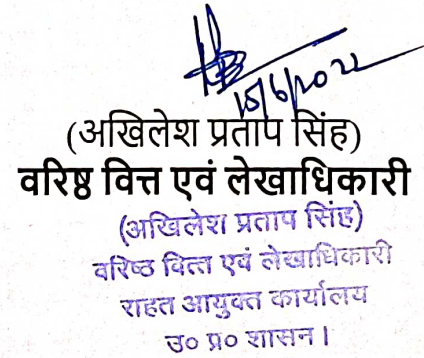 15/6/2022
(अखिलेश प्रताप सिंह)
वरिष्ठ वित्त एवं लेखाधिकारी
(अखिलेश प्रताप सिंह)
वरिष्ठ वित्त एवं लेखाधिकारी
राहत आयुक्त कार्यालय
उ० प्र० शासन।